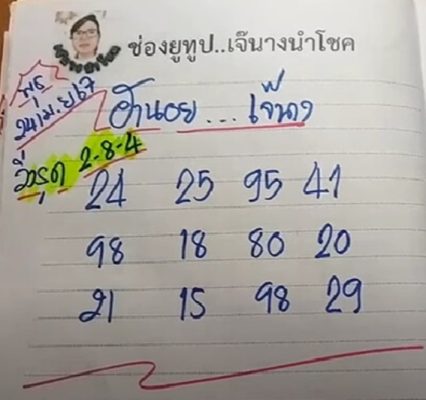 ช่องยูทูป..เจ๊นางนำโชค
พธ
24/เม.ย/67
ฮานอย...เจ๊นาง
วิ่งรูด 2-8-4
24 25 95 41
98 18 80 20
21 15 98 29